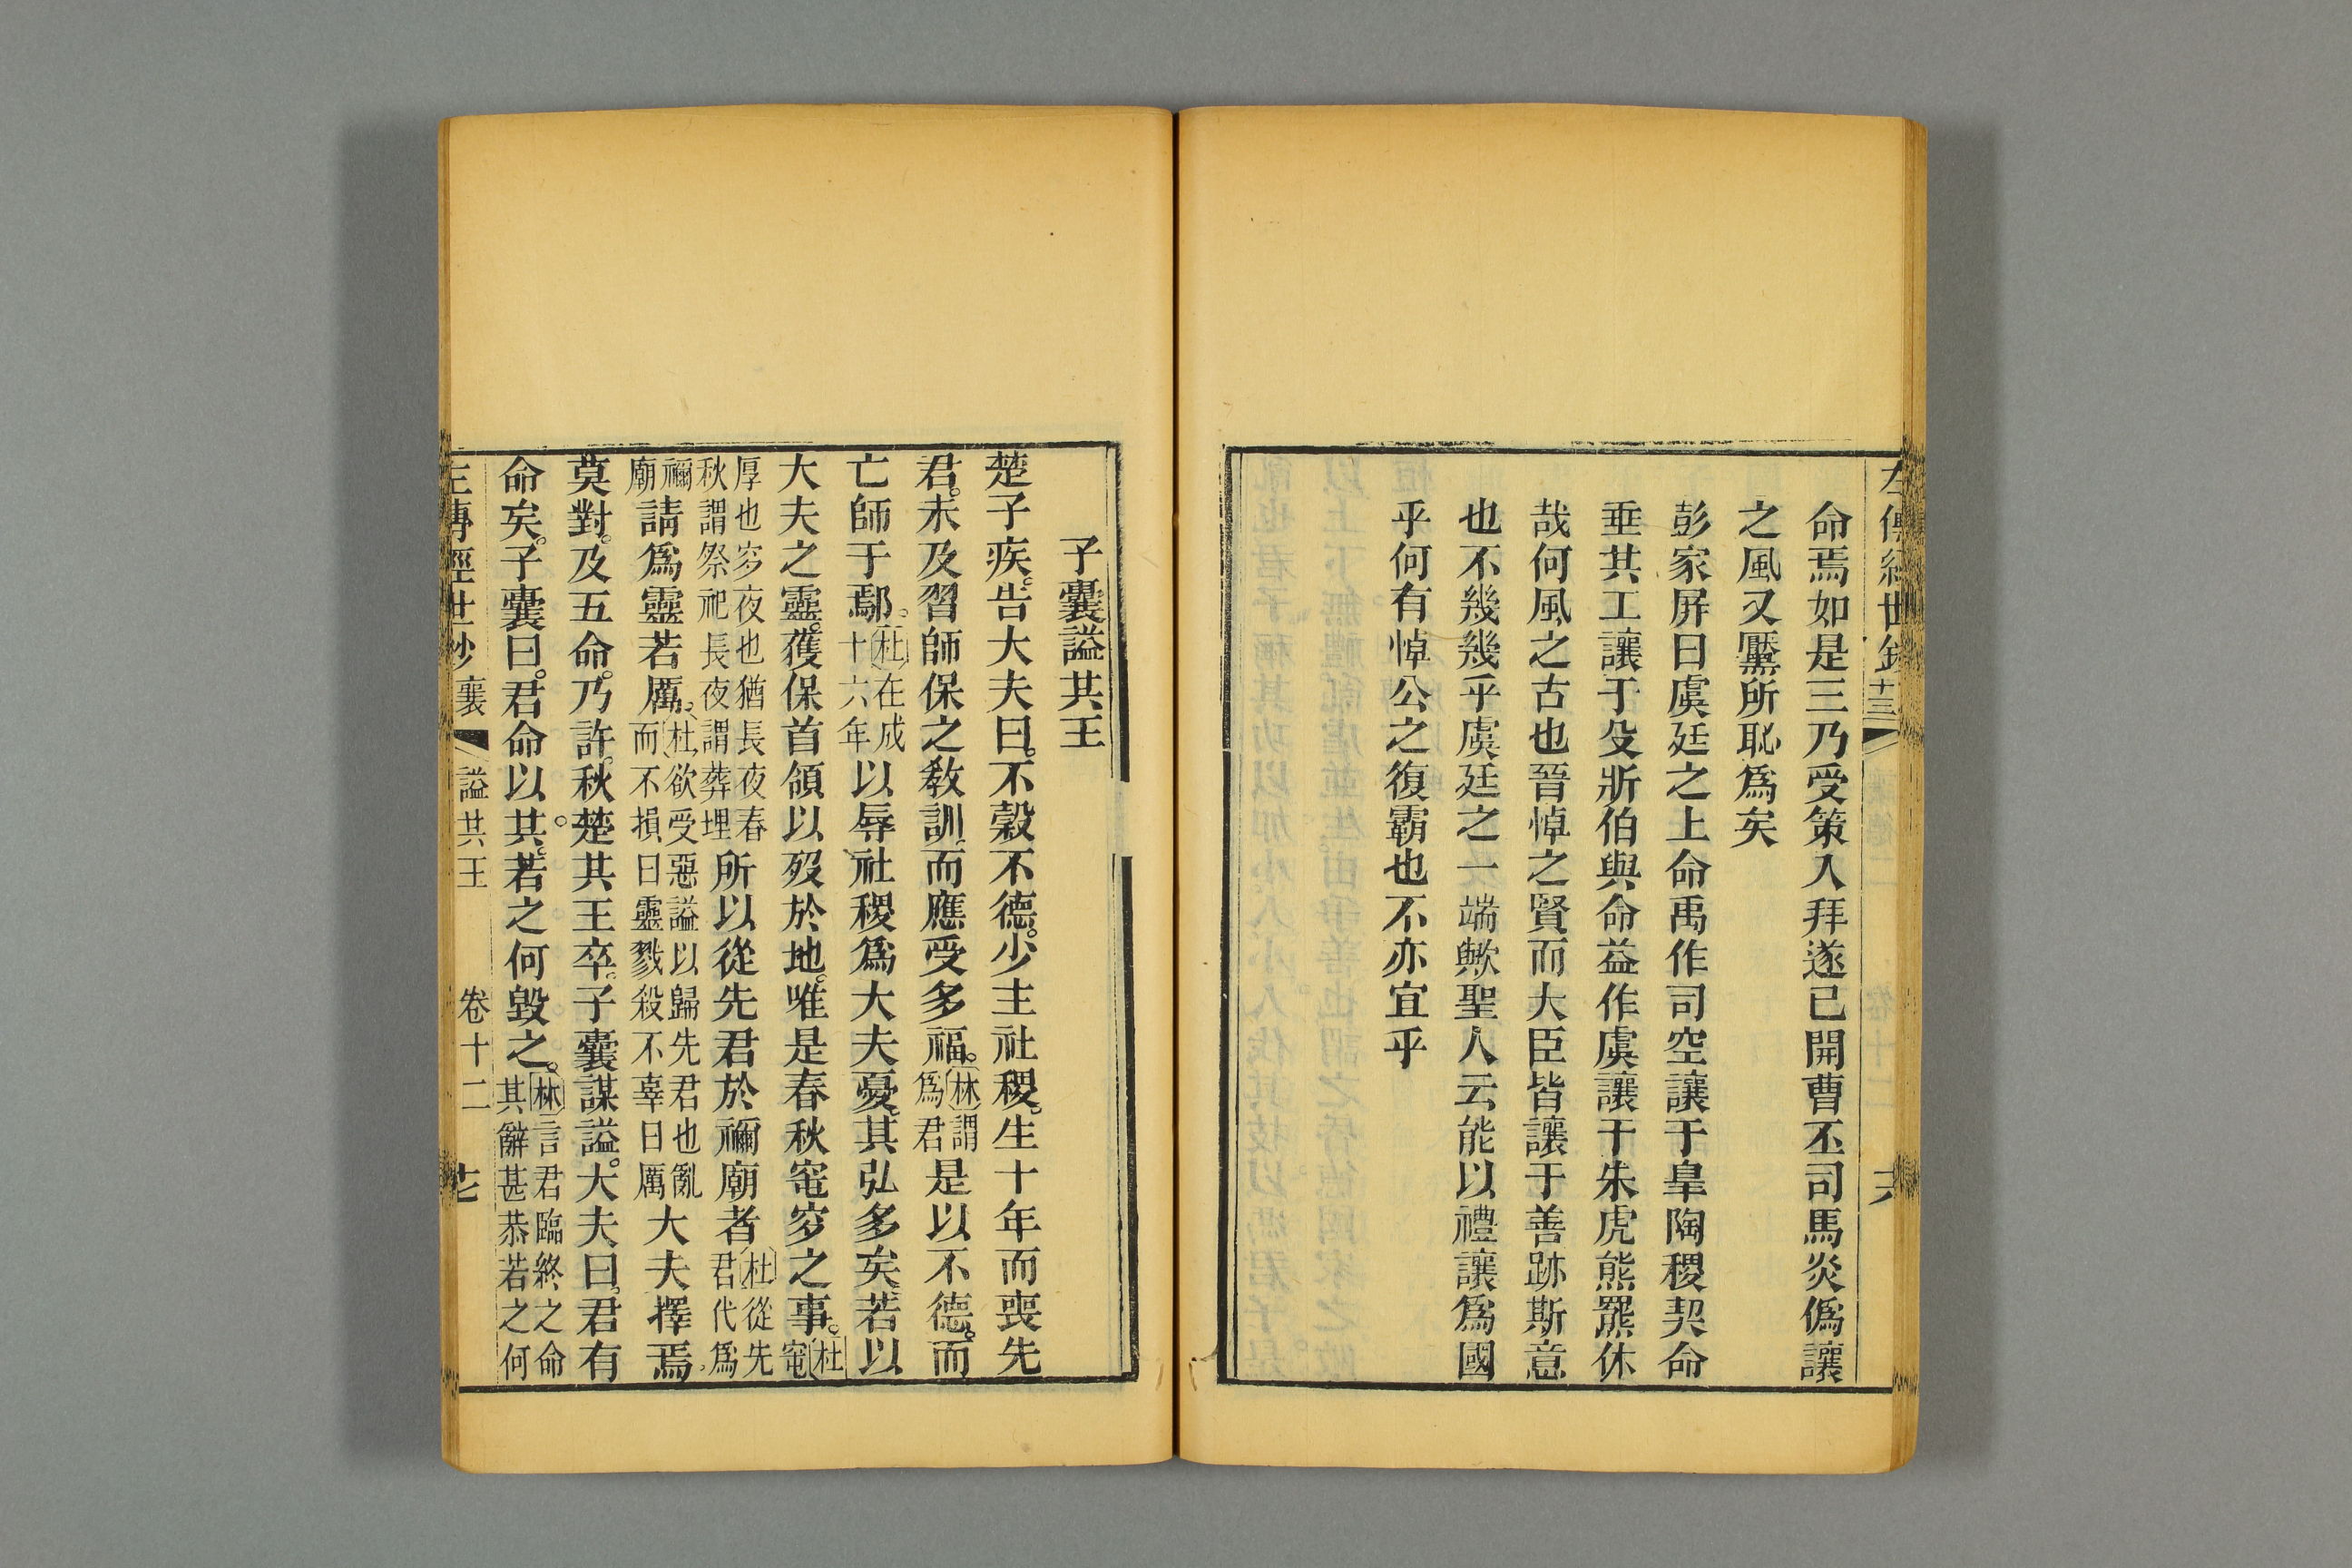 命焉如是三乃受策入拜遂已開曹丕司馬炎僞讓
之風又驪所恥爲矣
彭家屏曰虞廷之上命禹作司空讓于皐陶稷契命
垂共工讓于殳斨伯與命益作虞讓于朱虎熊羆休
哉何風之古也晉悼之賢而大臣皆讓于善跡斯意
也不幾幾乎虞廷之一端歟聖人云能以禮讓爲國
乎何有悼公之復霸也不亦宜乎
子囊謚共王
楚子疾。告大夫曰。不穀不德。少主社稷。生十年而喪先
君。未及習師保之敎訓。而應受多福。林謂爲君是以不德。而
亡師于鄢。杜在成十六年以辱社稷爲大夫憂。其弘多矣。若以
大夫之靈。獲保首領以歿於地。唯是春秋窀穸之事。杜窀
厚也穸夜也猶長夜春秋謂祭祀長夜謂葬埋所以從先君於禰廟者杜從先君代爲
禰廟請爲靈若厲。杜欲受惡謚以歸先君也亂而不損曰靈戮殺不辜曰厲大夫擇焉
莫對。及五命。乃許。秋。楚共王卒。子囊謀謚。大夫曰。君有
命矣。子囊曰。君命以共。若之何毀之。林言君臨終之命其辭甚恭若之何
左傳經世鈔 襄 謚共王 卷十二